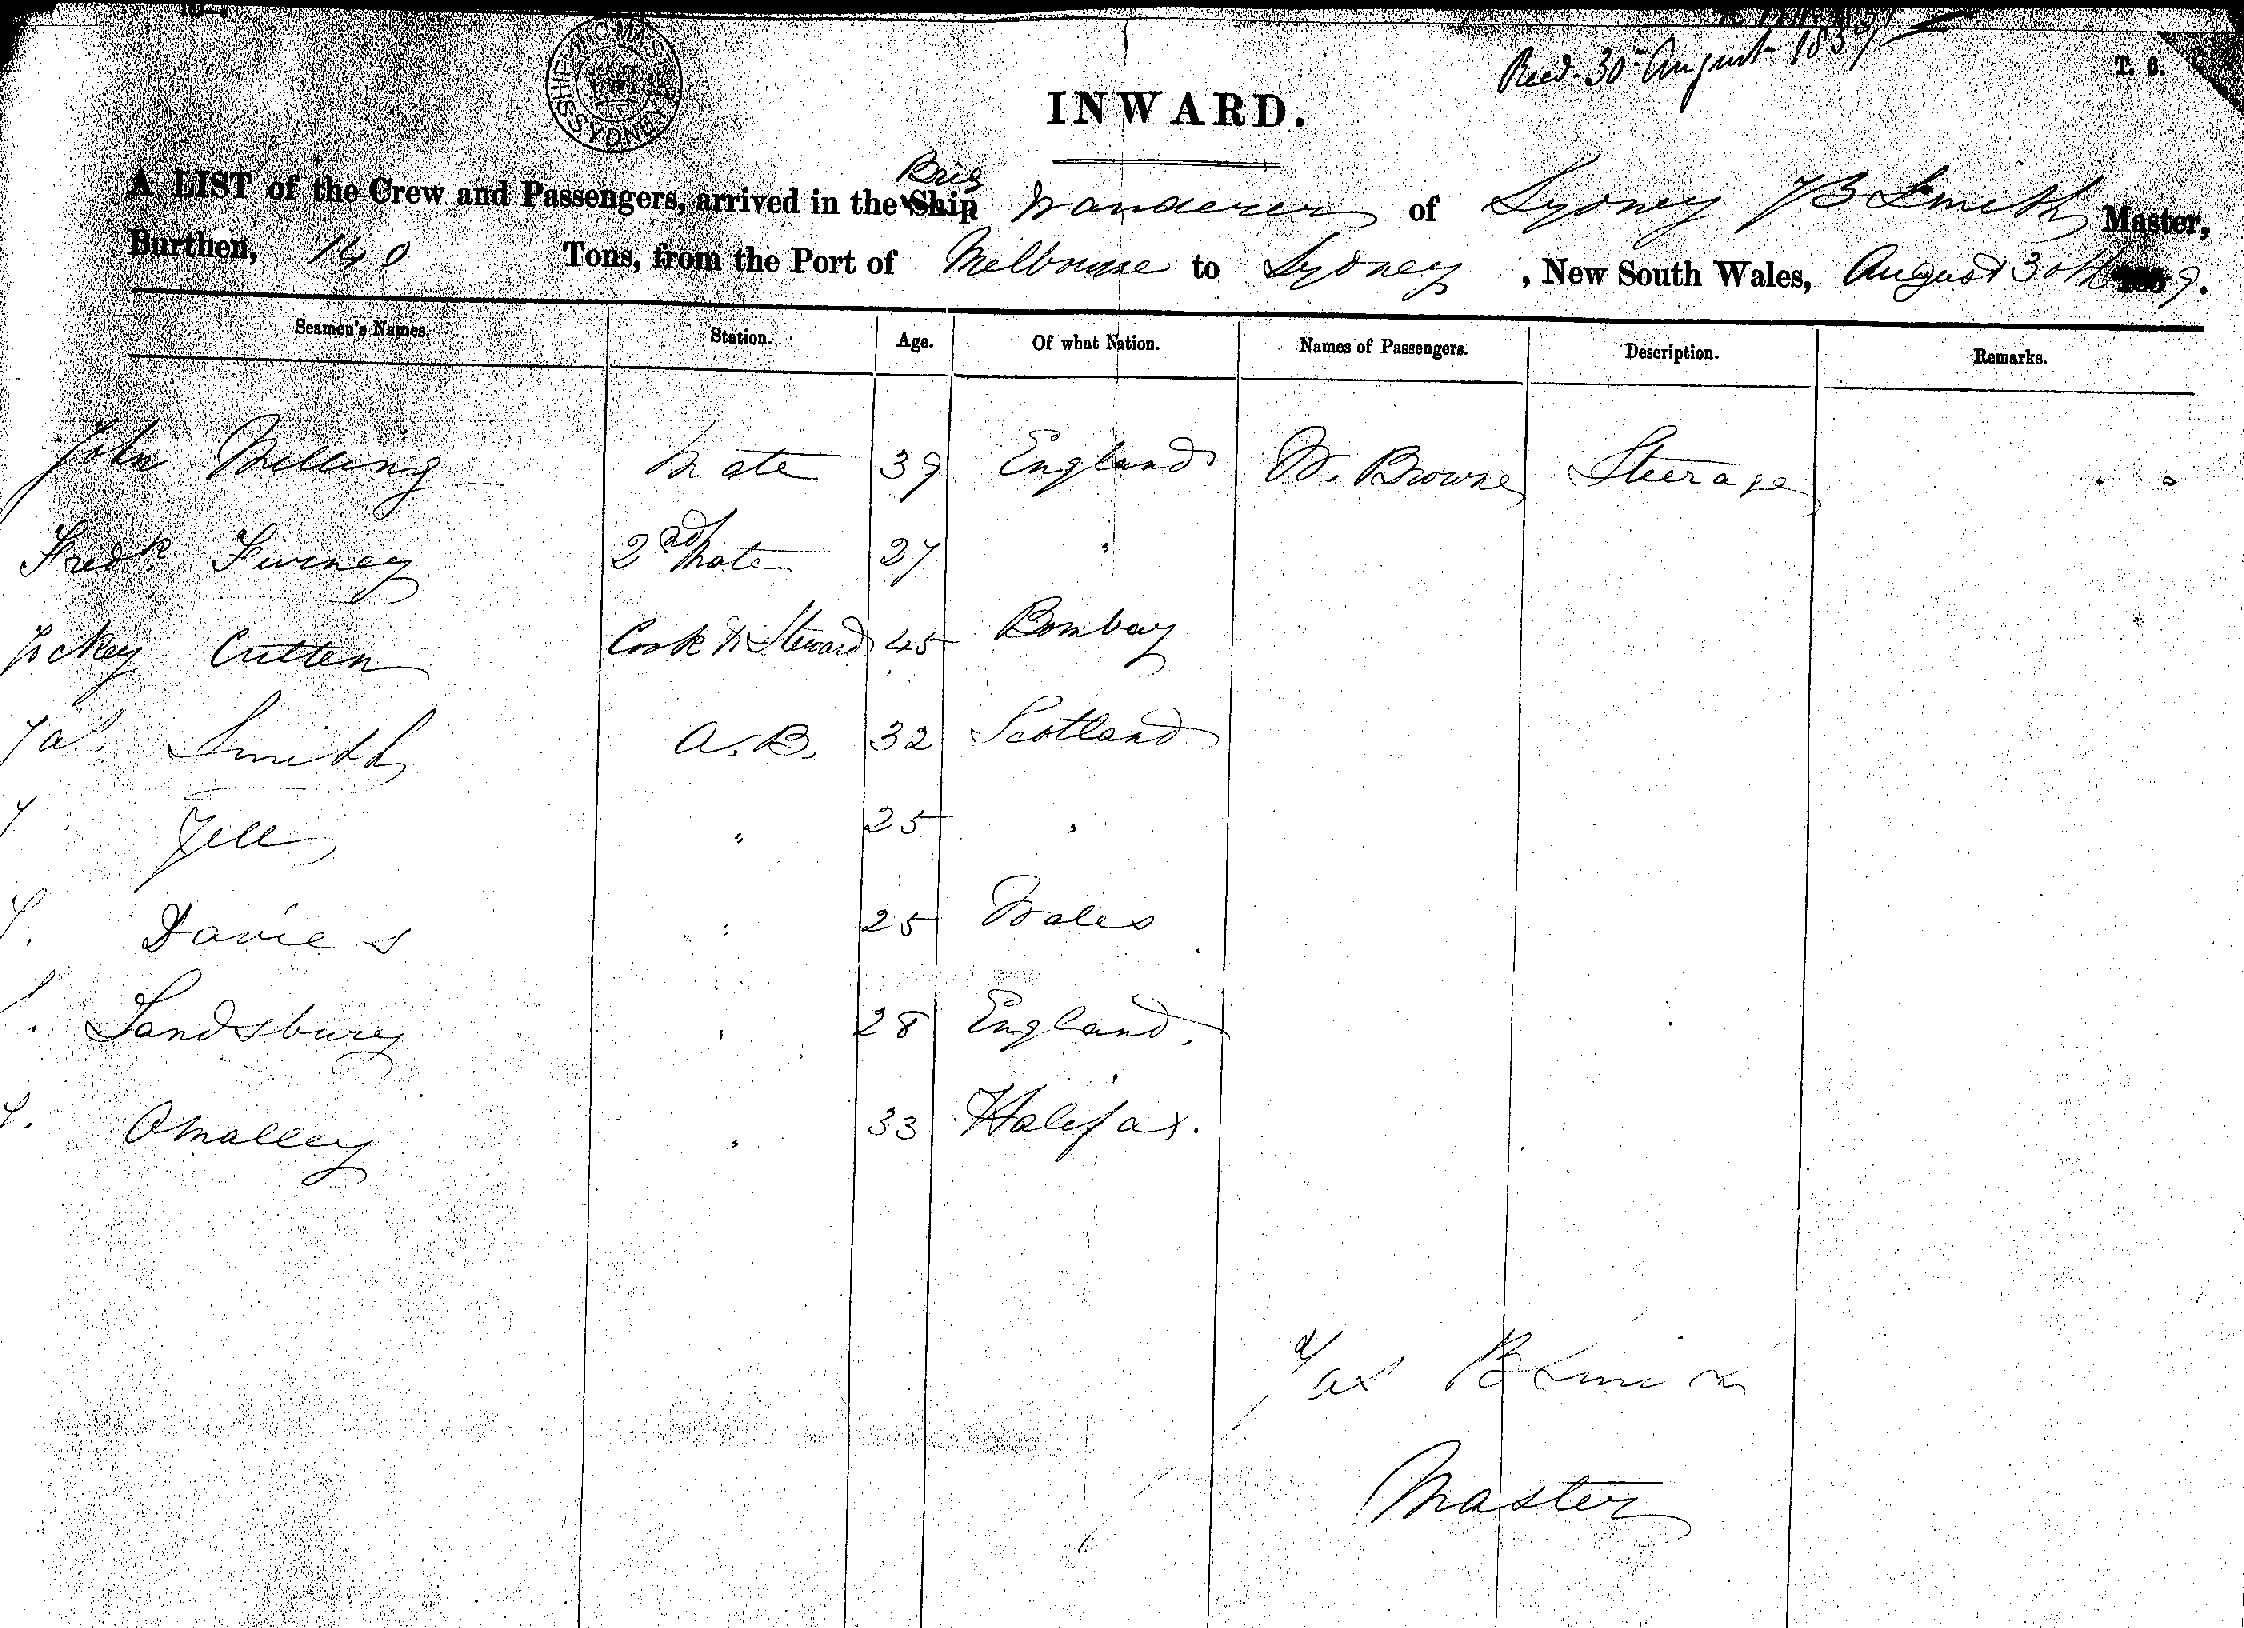 Recd. 30th August 1859
T. S.
INWARD.
A LIST of the Crew and Passengers, arrived in the Ship Brig Wanderer of Sydney J B Smith Master,
Burthen, 140 Tons, from the Port of Melbourne to Sydney, New South Wales, August 30th 1859.
Seamen's Names. Station. Age. Of what Nation. Names of Passengers. Description. Remarks.
John Melling Mate 39 England W. Browne Steerage
Fredk 2nd Mate 27 "
Cutten Cook & Steward 45 Bombay
Jas Smith A.B. 32 Scotland
Jell " 25 "
Davies " 25 Wales
Sandsbury " 28 England.
OMalley " 33 Halifax.
Jas B Smith
Master